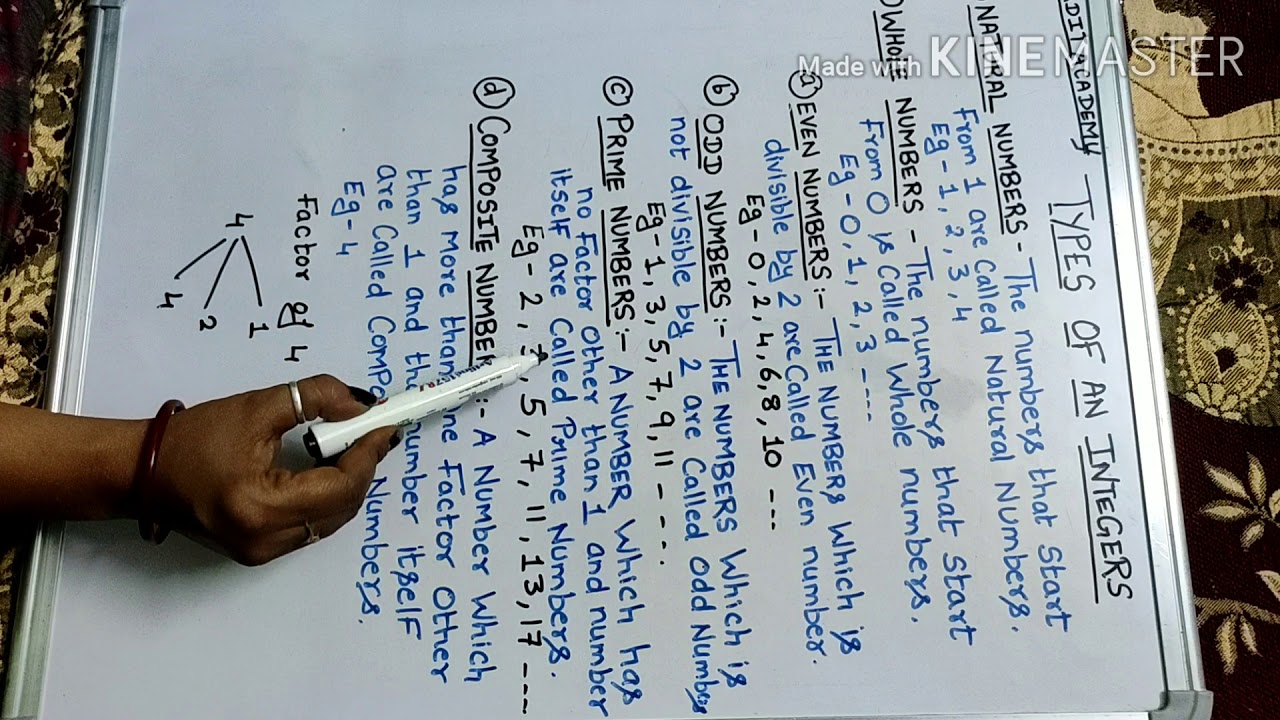 Made with KINEMASTER
ADITI ACADEMY
TYPES OF AN INTEGERS
NATURAL NUMBERS - The numbers that Start
From 1 are Called Natural Numbers.
Eg - 1, 2, 3, 4
WHOLE NUMBERS - The numbers that Start
From 0 is Called Whole numbers.
Eg - 0, 1, 2, 3 ----
a EVEN NUMBERS:- THE NUMBERS Which is
divisible by 2 are Called Even number.
Eg - 0, 2, 4, 6, 8, 10 ---
b ODD NUMBERS:- THE NUMBERS Which is
not divisible by 2 are Called Odd Numbers
Eg - 1, 3, 5, 7, 9, 11 - - - -
c PRIME NUMBERS:- A NUMBER Which has
no Factor Other than 1 and number
itself are Called Prime Numbers.
Eg - 2, 3, 5, 7, 11, 13, 17 ---
d COMPOSITE NUMBER:- A Number Which
has More than One Factor Other
than 1 and the number itself
are Called Numbers.
Eg - 4
Factor of 4
4
1
2
4